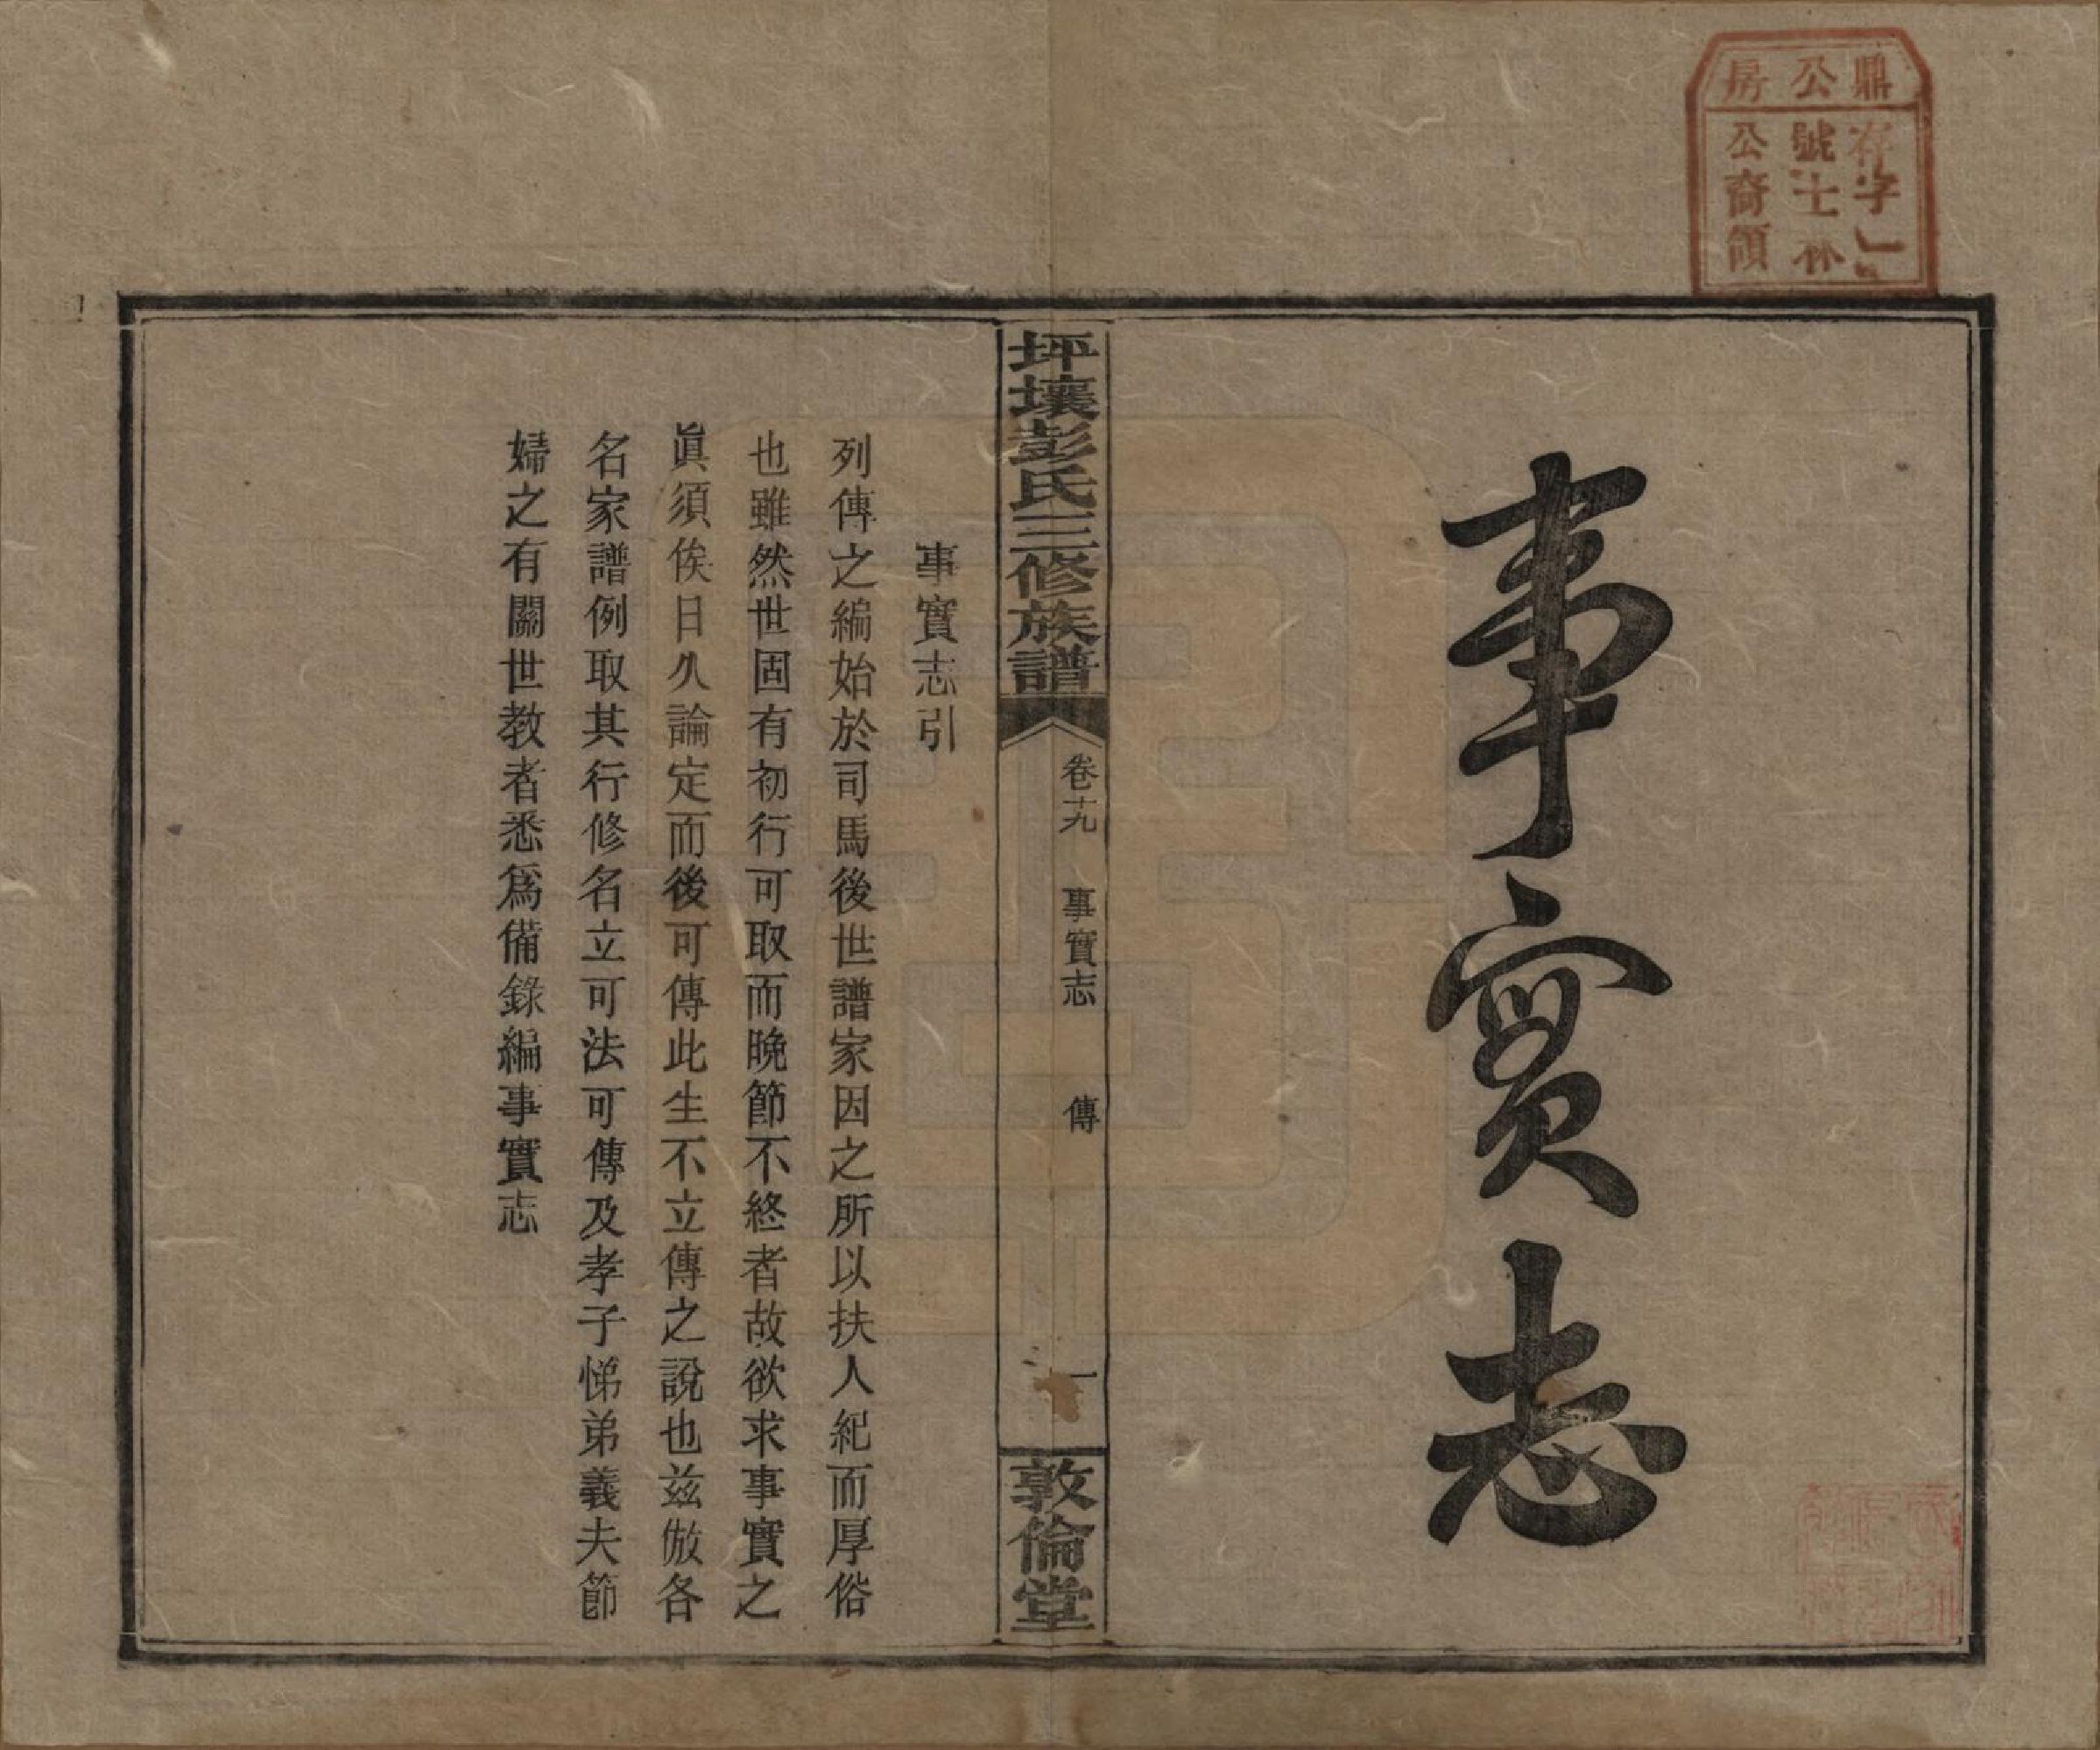 鼎公房
存字
號士林
公裔領
事實志
坪壤彭氏三修族譜
卷十九
事實志
傳
一
敦倫堂
事實志引
列傳之編始於司馬後世譜家因之所以扶人紀而厚俗
也雖然世固有初行可取而晚節不終者故欲求事實之
眞須俟日久論定而後可傳此生不立傳之說也茲倣各
名家譜例取其行修名立可法可傳及孝子悌弟義夫節
婦之有關世教者悉爲備錄編事實志